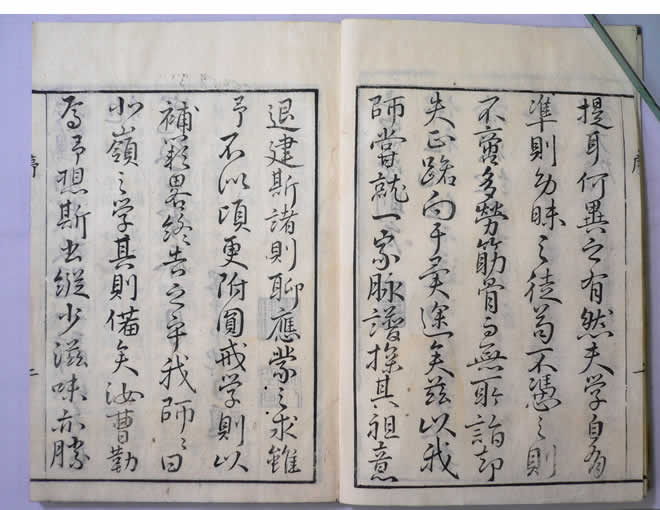 提耳何異之有然夫学自有
準則幼昧之徒苟不憑之則
不啻多勞筋骨而無所詣却
失正路向于異途矣茲以我
師嘗就一家脉譜探其祖意
序
一
退建斯諸則聊應蒙之求雖
予不似頃更附圓戒学則以
補影畧終告之乎我師々曰
北嶺之学其則備矣汝曹勤
焉予想斯出縱少滋味亦勝
序
二